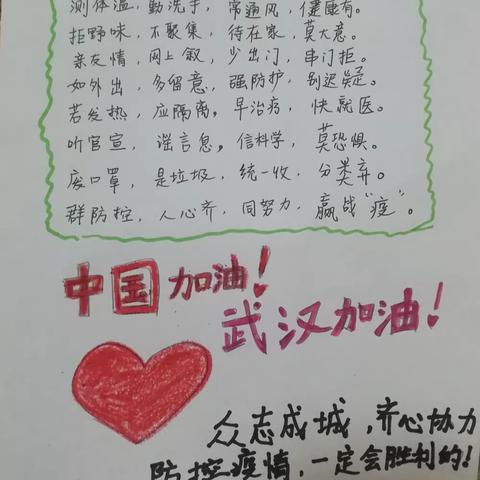 测体温，勤洗手，常通风，健康有。
拒野味，不聚集，待在家，莫大意。
亲友情，网上叙，少出门，串门拒。
如外出，多留意，强防护，别迟疑。
若发热，应隔离，早治疗，快就医。
听官宣，谣言息，信科学，莫恐惧。
废口罩，是垃圾，统一收，分类弃。
群防控，人心齐，同努力，赢战“疫”。
中国加油！
武汉加油！
众志成城，齐心协力
防控疫情，一定会胜利的！